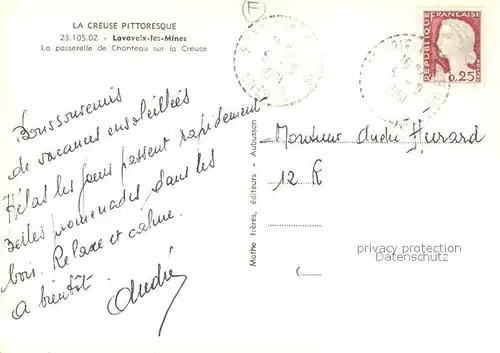 LA CREUSE PITTORESQUE
23.105.02. - Lavaveix-les-Mines
La passerelle de Chanteau sur la Creuse
F
REPUBLIQUE FRANÇAISE
0,25
Bons souvenirs
de vacances ensoleillées
Hélas les jours passent rapidement
Belles promenades dans les
bois. Relaxe et calme.
A bientôt.
André
Mothe frères, éditeurs - Aubusson
Monsieur André Hurard
12 R
privacy protection
Datenschutz